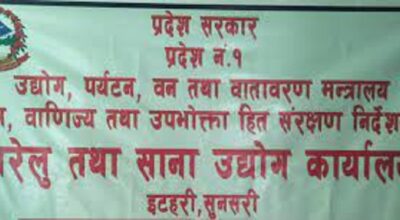 प्रदेश सरकार
प्रदेश नं.१
उद्योग, पर्यटन, वन तथा वातावरण मन्त्रालय
वाणिज्य तथा उपभोक्ता हित संरक्षण
तथा साना उद्योग
इटहरी,सुनसरी